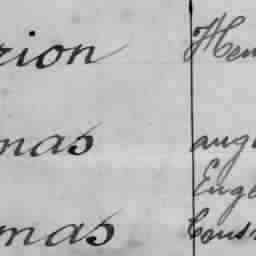 rion Hen
mas augu
Euge
mas Cons